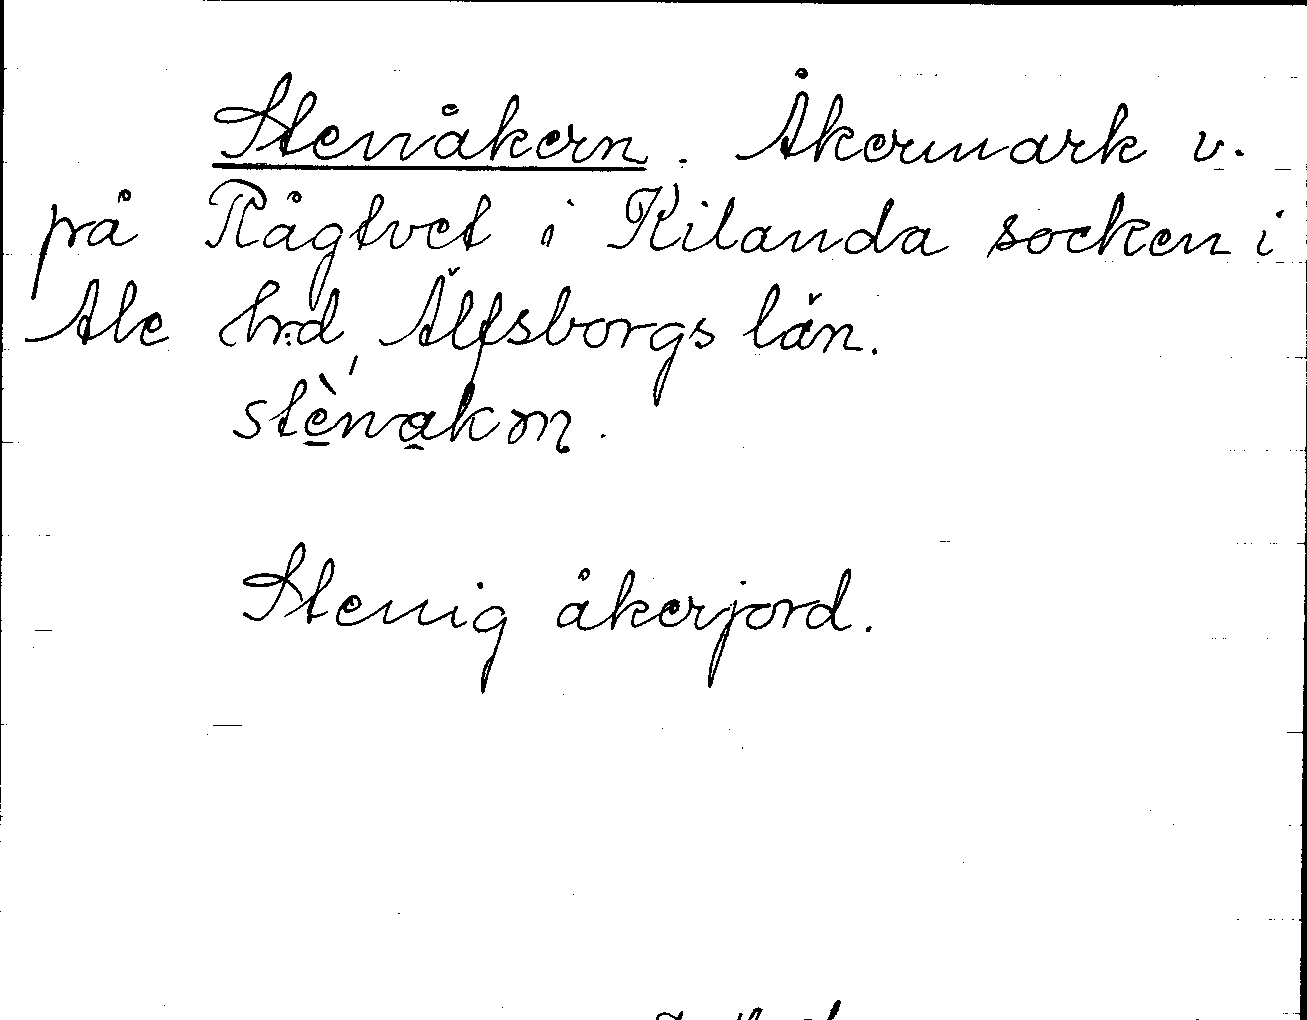 Stenåkern. Åkermark v.
på Rågtvet i Kilanda socken i
Ale hrd, Älfsborgs län.
stènakn.
Stenig åkerjord.